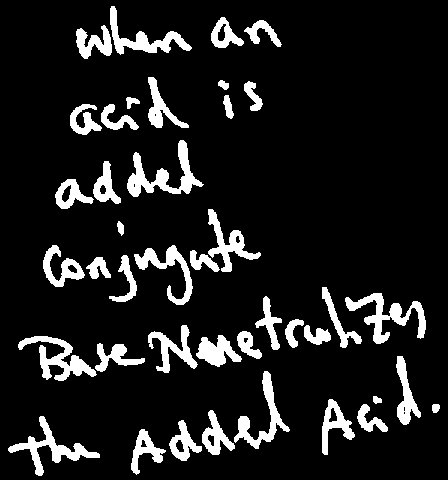 when an
acid is
added
conjugate
Base Neutralizes
the Added Acid.